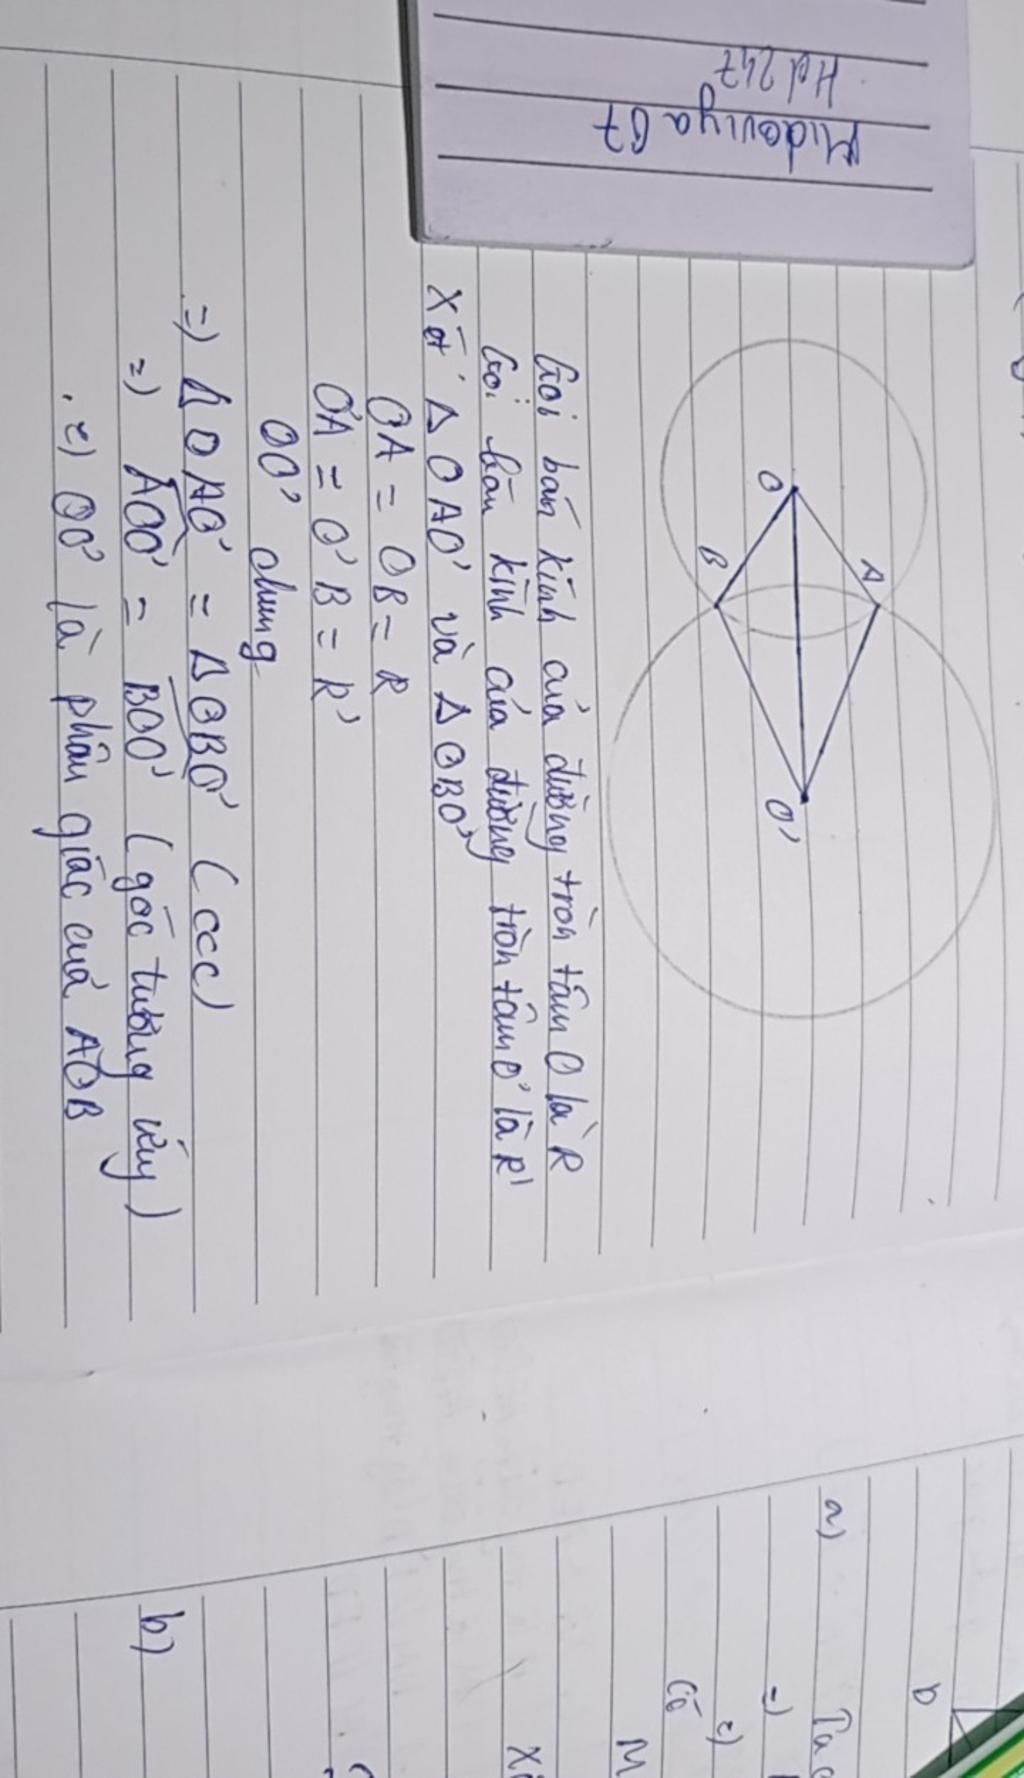 Midoviya 67
Hd 247
A
O
O'
B
Gọi bán kính của đường tròn tâm O là R
Gọi bán kính của đường tròn tâm O' là R'
Xét Δ OAO' và Δ OBO'
OA = OB = R
O'A = O'B = R'
OO' chung
=) Δ OAO' = Δ OBO' (ccc)
=) AOO' = BOO' (góc tương ứng)
=) OO' là phân giác của AOB
b
a) Ta c
=)
=)
Có
M
b)